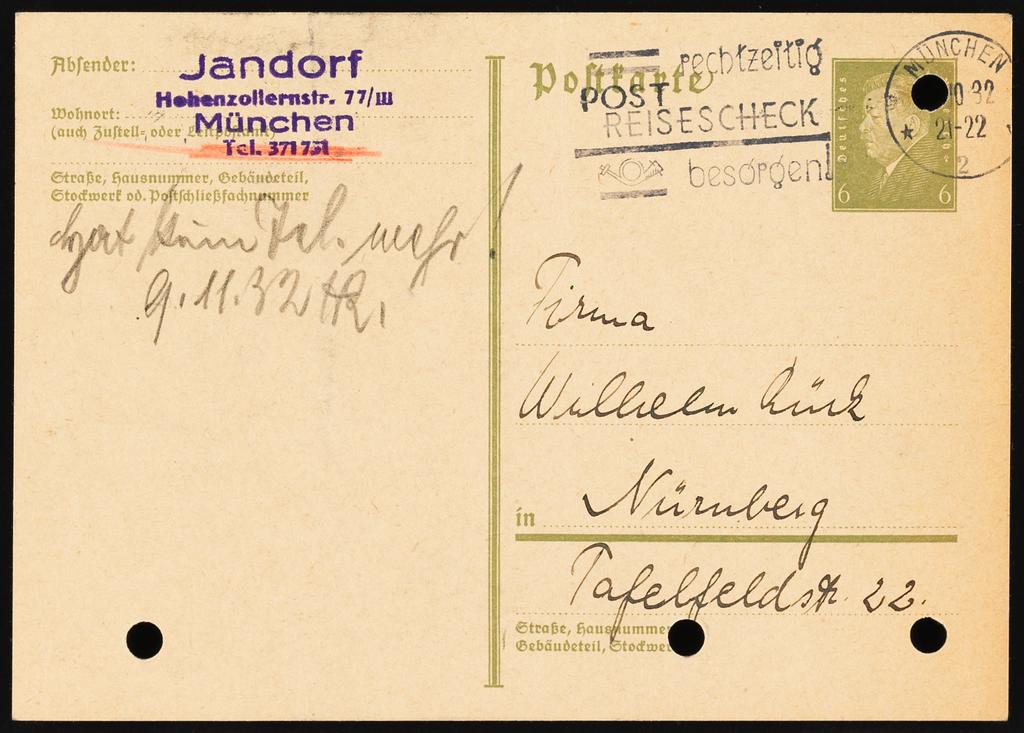 Absender: Jandorf
Hohenzollernstr. 77/III
Wohnort: München
(auch Zustell- oder Leitpostamt)
Tel. 371731
Straße, Hausnummer, Gebäudeteil,
Stockwerk od. Postschließfachnummer
hat kein Tel. mehr
9.11.32
Postkarte
rechtzeitig
POST
REISESCHECK
besorgen!
Deutsches
6 6
MÜNCHEN
10 32
21-22
2
Firma
Wilhelm Rück
in Nürnberg
Tafelfeldstr. 22.
Straße, Hausnummer
Gebäudeteil, Stockwer